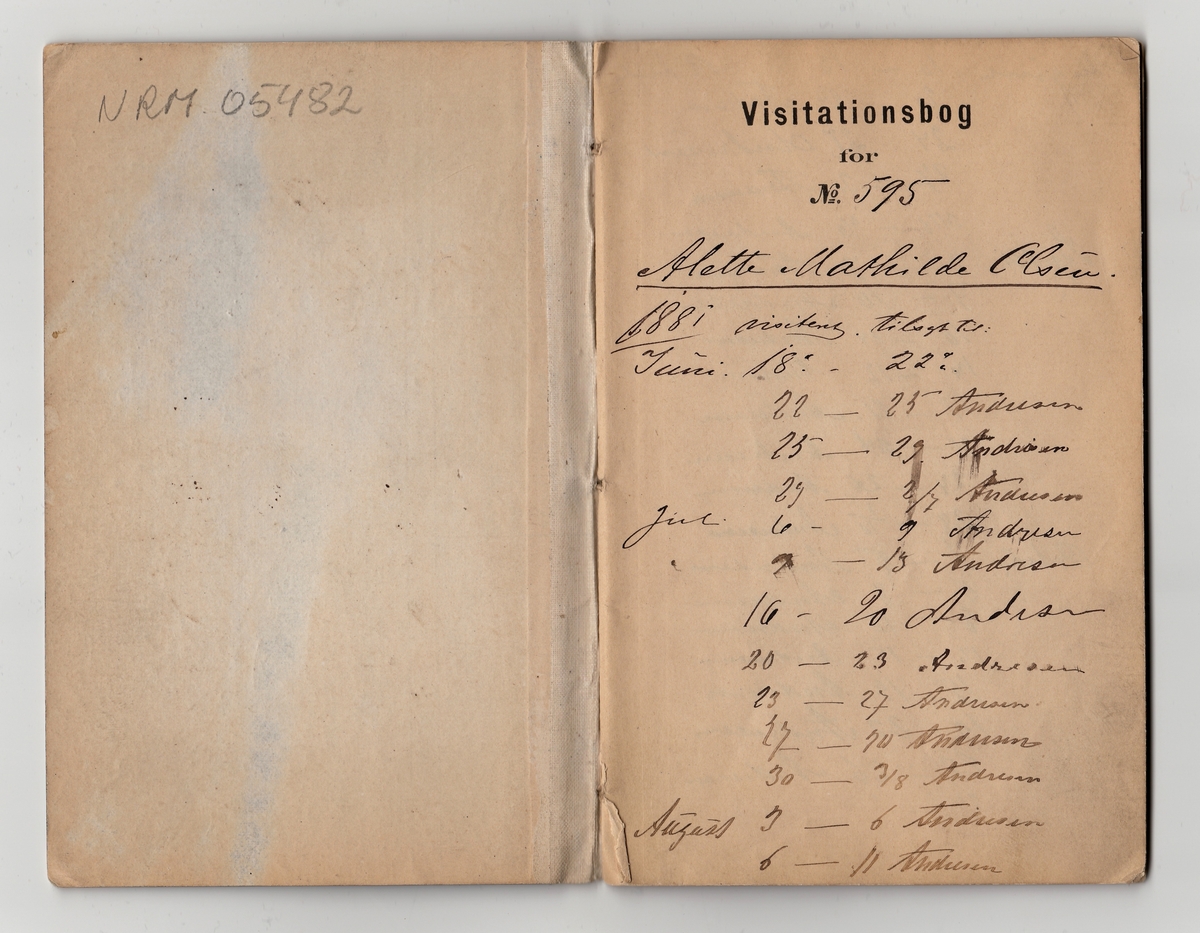 NRM. 05482
Visitationsbog
for
№. 595
Alette Mathilde Olsen.
1881 visiteret. tilsagt til:
Juni. 18. - 22.
22 — 25 Andresen
25 — 29 Andresen
29 — 2/7 Andresen
Jul. 6 - 9 Andresen
9 — 13 Andresen
16 - 20 Andresen
20 — 23 Andresen
23 — 27 Andresen
27 — 30 Andresen
30 — 3/8 Andresen
August 3 — 6 Andresen
6 — 11 Andresen